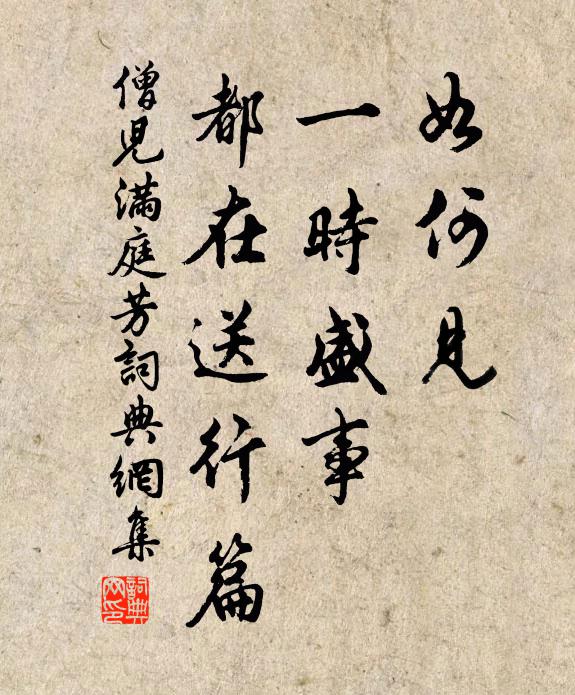 如何見
一時盛事
都在送行篇
僧児滿庭芳詞典網集
詞典网印